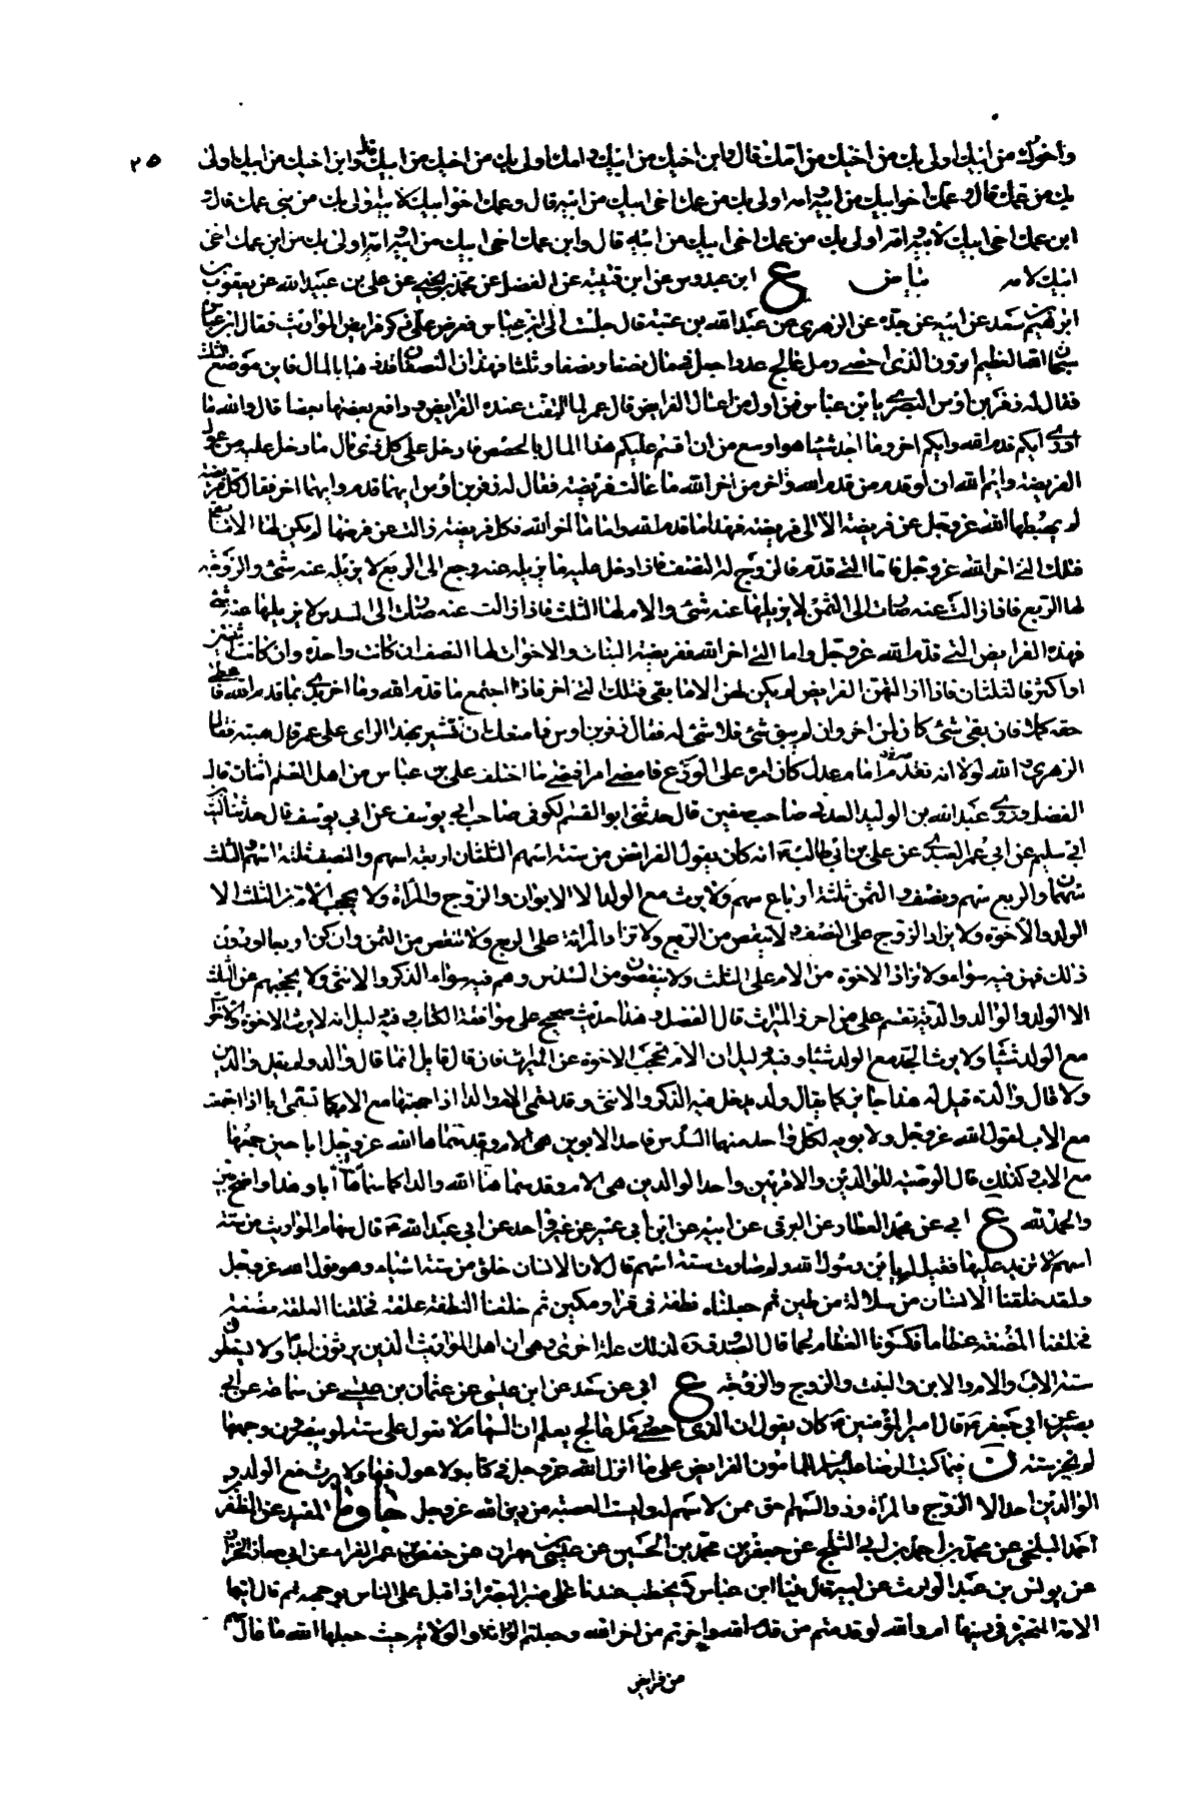 واخوك من ابيك اولى بك من اخيك من امك قال وابن اخيك من ابيك وامك اولى بك من ابن اخيك من ابيك قال وابن اخيك من ابيك اولى ٢٥
بك من عمك قال وعمك اخو ابيك من ابيه وامه اولى بك من عمك اخى ابيك من ابيه قال وعمك اخو ابيك لابيه اولى بك من بنى عمك قال و
ابن عمك اخى ابيك لابيه وامه اولى بك من عمك اخى ابيك من ابيه قال وابن عمك اخى ابيك من ابيه وامه اولى بك من ابن عمك اخى
ابيك لامه ع ابن عبدوس عن ابن قتيبه عن الفضل عن محمد بن يحيى عن على بن عبيد الله عن يعقوب بن
ابرهيم بن سعد عن ابيه عن جده عن الزهرى عن عبيد الله بن عتبة قال جلست الى ابن عباس فعرض على ذكر فرايض المواريث فقال ابن عباس
سبحان الله العظيم اترون الذى احصى رمل عالج عددا جعل فى مال نصفا ونصفا وثلثا فهذان النصفان قد ذهبا بالمال فاين موضع الثلث
فقال له زفر بن اوس البصرى يا ابن عباس فمن اول من اعال الفرايض قال عمر لما التفت عنده الفرايض ودافع بعضها بعضا قال والله ما
ادرى ايكم قدم الله وايكم اخر وما اجد شيئا هو اوسع من ان اقسم عليكم هذا المال بالحصص فادخل على كل ذى مال ما دخل عليه من عول
الفريضة وايم الله ان لو قدم من قدم الله واخر من اخر الله ما عالت فريضة فقال له زفر بن اوس ايهما قدم وايهما اخر فقال كل فريضة
لم يهبطها الله عز وجل عن فريضة الا الى فريضة فهذا ما قدم الله واما ما اخر الله فكل فريضة زالت عن فرضها لم يكن لها الا ما بقى
فتلك التى اخر الله عز وجل فاما التى قدم فالزوج له النصف فاذا دخل عليه ما يزيله عنه رجع الى الربع لا يزيله عنه شئ والزوجة
لها الربع فاذا زالت عنه صارت الى الثمن لا يزيلها عنه شئ والام لها الثلث فاذا زالت عنه صارت الى السدس لا يزيلها عنه شئ
فهذه الفرايض التى قدم الله عز وجل واما التى اخر الله ففريضة البنات والاخوات لها النصف ان كانت واحدة وان كانت اثنتين
او اكثر فالثلثان فاذا ازالتهن الفرايض لم يكن لهن الا ما بقى فتلك التى اخر فاذا اجتمع ما قدم الله وما اخر بدئ بما قدم الله فاعطى
حقه كملا فان بقى شئ كان لمن اخر وان لم يبق شئ فلا شئ له فقال زفر بن اوس فما منعك ان تشير بهذا الراى على عمر قال هبته فقال
الزهرى والله لولا انه تقدمه امام عدل كان امره على الورع فامضى امرا فمضى ما اختلف على بن عباس من اهل العلم اثنان قال
الفضل وروى عبد الله بن الوليد العدنى صاحب سفين قال حدثنى ابو القسم الكوفى صاحب ابى يوسف عن ابى يوسف قال حدثنا ليث بن
ابى سليم عن ابى عمر العبدى عن على بن ابى طالب ع انه كان يقول الفرائض من ستة اسهم الثلثان اربعة اسهم والنصف ثلثة اسهم والثلث
سهمان والربع سهم ونصف والثمن ثلثة ارباع سهم ولا يرث مع الولد الا الابوان والزوج والمراة ولا يحجب الام من الثلث الا
الولد والاخوة ولا يزاد الزوج على النصف ولا ينقص من الربع ولا تزاد المراة على الربع ولا تنقص من الثمن وان كن اربعا او دون
ذلك فهن فيه سواء ولا تزاد الاخوة من الام على الثلث ولا ينقصون من السدس وهم فيه سواء الذكر والانثى ولا يحجبهم عن الثلث
الا الولد والوالد والدية تقسم على من احرز الميراث قال الفضل وهذا حديث صحيح على موافقة الكتاب وفيه دليل انه لا يرث الاخوة والاخوات
مع الولد شيئا ولا يرث الجد مع الولد شيئا وفيه دليل ان الام تحجب الاخوة عن الميراث فان قال قايل انما قال والد ولم يقل والدين
ولا قال والدة قيل له هذا جايز كما يقال ولد يدخل فيه الذكر والانثى وقد تسمى الام والدا اذا جمعتها مع الاب كما تسمى ابا اذا اجتمعت
مع الاب لقول الله عز وجل ولابويه لكل واحد منهما السدس فاحد الابوين هى الام وقد سماها الله عز وجل ابا حين جمعها
مع الاب وكذلك قال الوصية للوالدين والاقربين واحد الوالدين هى الام وقد سماها الله والدا كما سماها ابا وهذا واضح بين
والحمد لله ع ابى عن محمد العطار عن البرقى عن ابيه عن ابن ابى عمير عن غير واحد عن ابى عبد الله ع قال سهام المواريث من ستة
اسهم لا تزيد عليها فقيل له يا بن رسول الله ولم صارت ستة اسهم قال لان الانسان خلق من ستة اشياء وهو قول الله عز وجل
ولقد خلقنا الانسان من سلالة من طين ثم جعلناه نطفة فى قرار مكين ثم خلقنا النطفة علقة فخلقنا العلقة مضغة
فخلقنا المضغة عظاما فكسونا العظام لحما قال الصدوق ره لذلك علة اخرى وهى ان اهل المواريث الذين يرثون ابدا ولا يسقطون
ستة الاب والام والابن والبنت والزوج والزوجة ع ابى عن سعد عن ابن عيسى عن عثمان بن عيسى عن سماعة عن ابى
بصير عن ابى جعفر ع قال امير المؤمنين ع كان يقول ان الذى احصى رمل عالج يعلم ان السهام لا تعول على ستة لو يبصرون وجهها
لم تجز ستة ن فيما كتب الرضا عليه السلام للمامون الفرايض على ما انزل الله عز وجل فى كتابه لا عول فيها ولا يرث مع الولد و
الوالدين احد الا الزوج والمراة وذو السهام احق ممن لا سهم له وليست العصبة من دين الله عز وجل جا وما المفيد عن المظفر بن
احمد البلخى عن محمد بن احمد بن ابى الثلج عن جعفر بن محمد بن الحسين عن عيسى بن مهران عن حفص بن عمر الفراء عن ابى معاذ الخزاز
عن يونس بن عبد الوارث عن ابيه قال بينا ابن عباس ره يخطب عندنا على منبر البصرة اذ اقبل على الناس بوجهه ثم قال ايتها
الامة المتحيرة فى دينها ام والله لو قدمتم من قدم الله واخرتم من اخر الله وجعلتم الوراثة والولاية حيث جعلها الله ما عال سهم
من فرايض